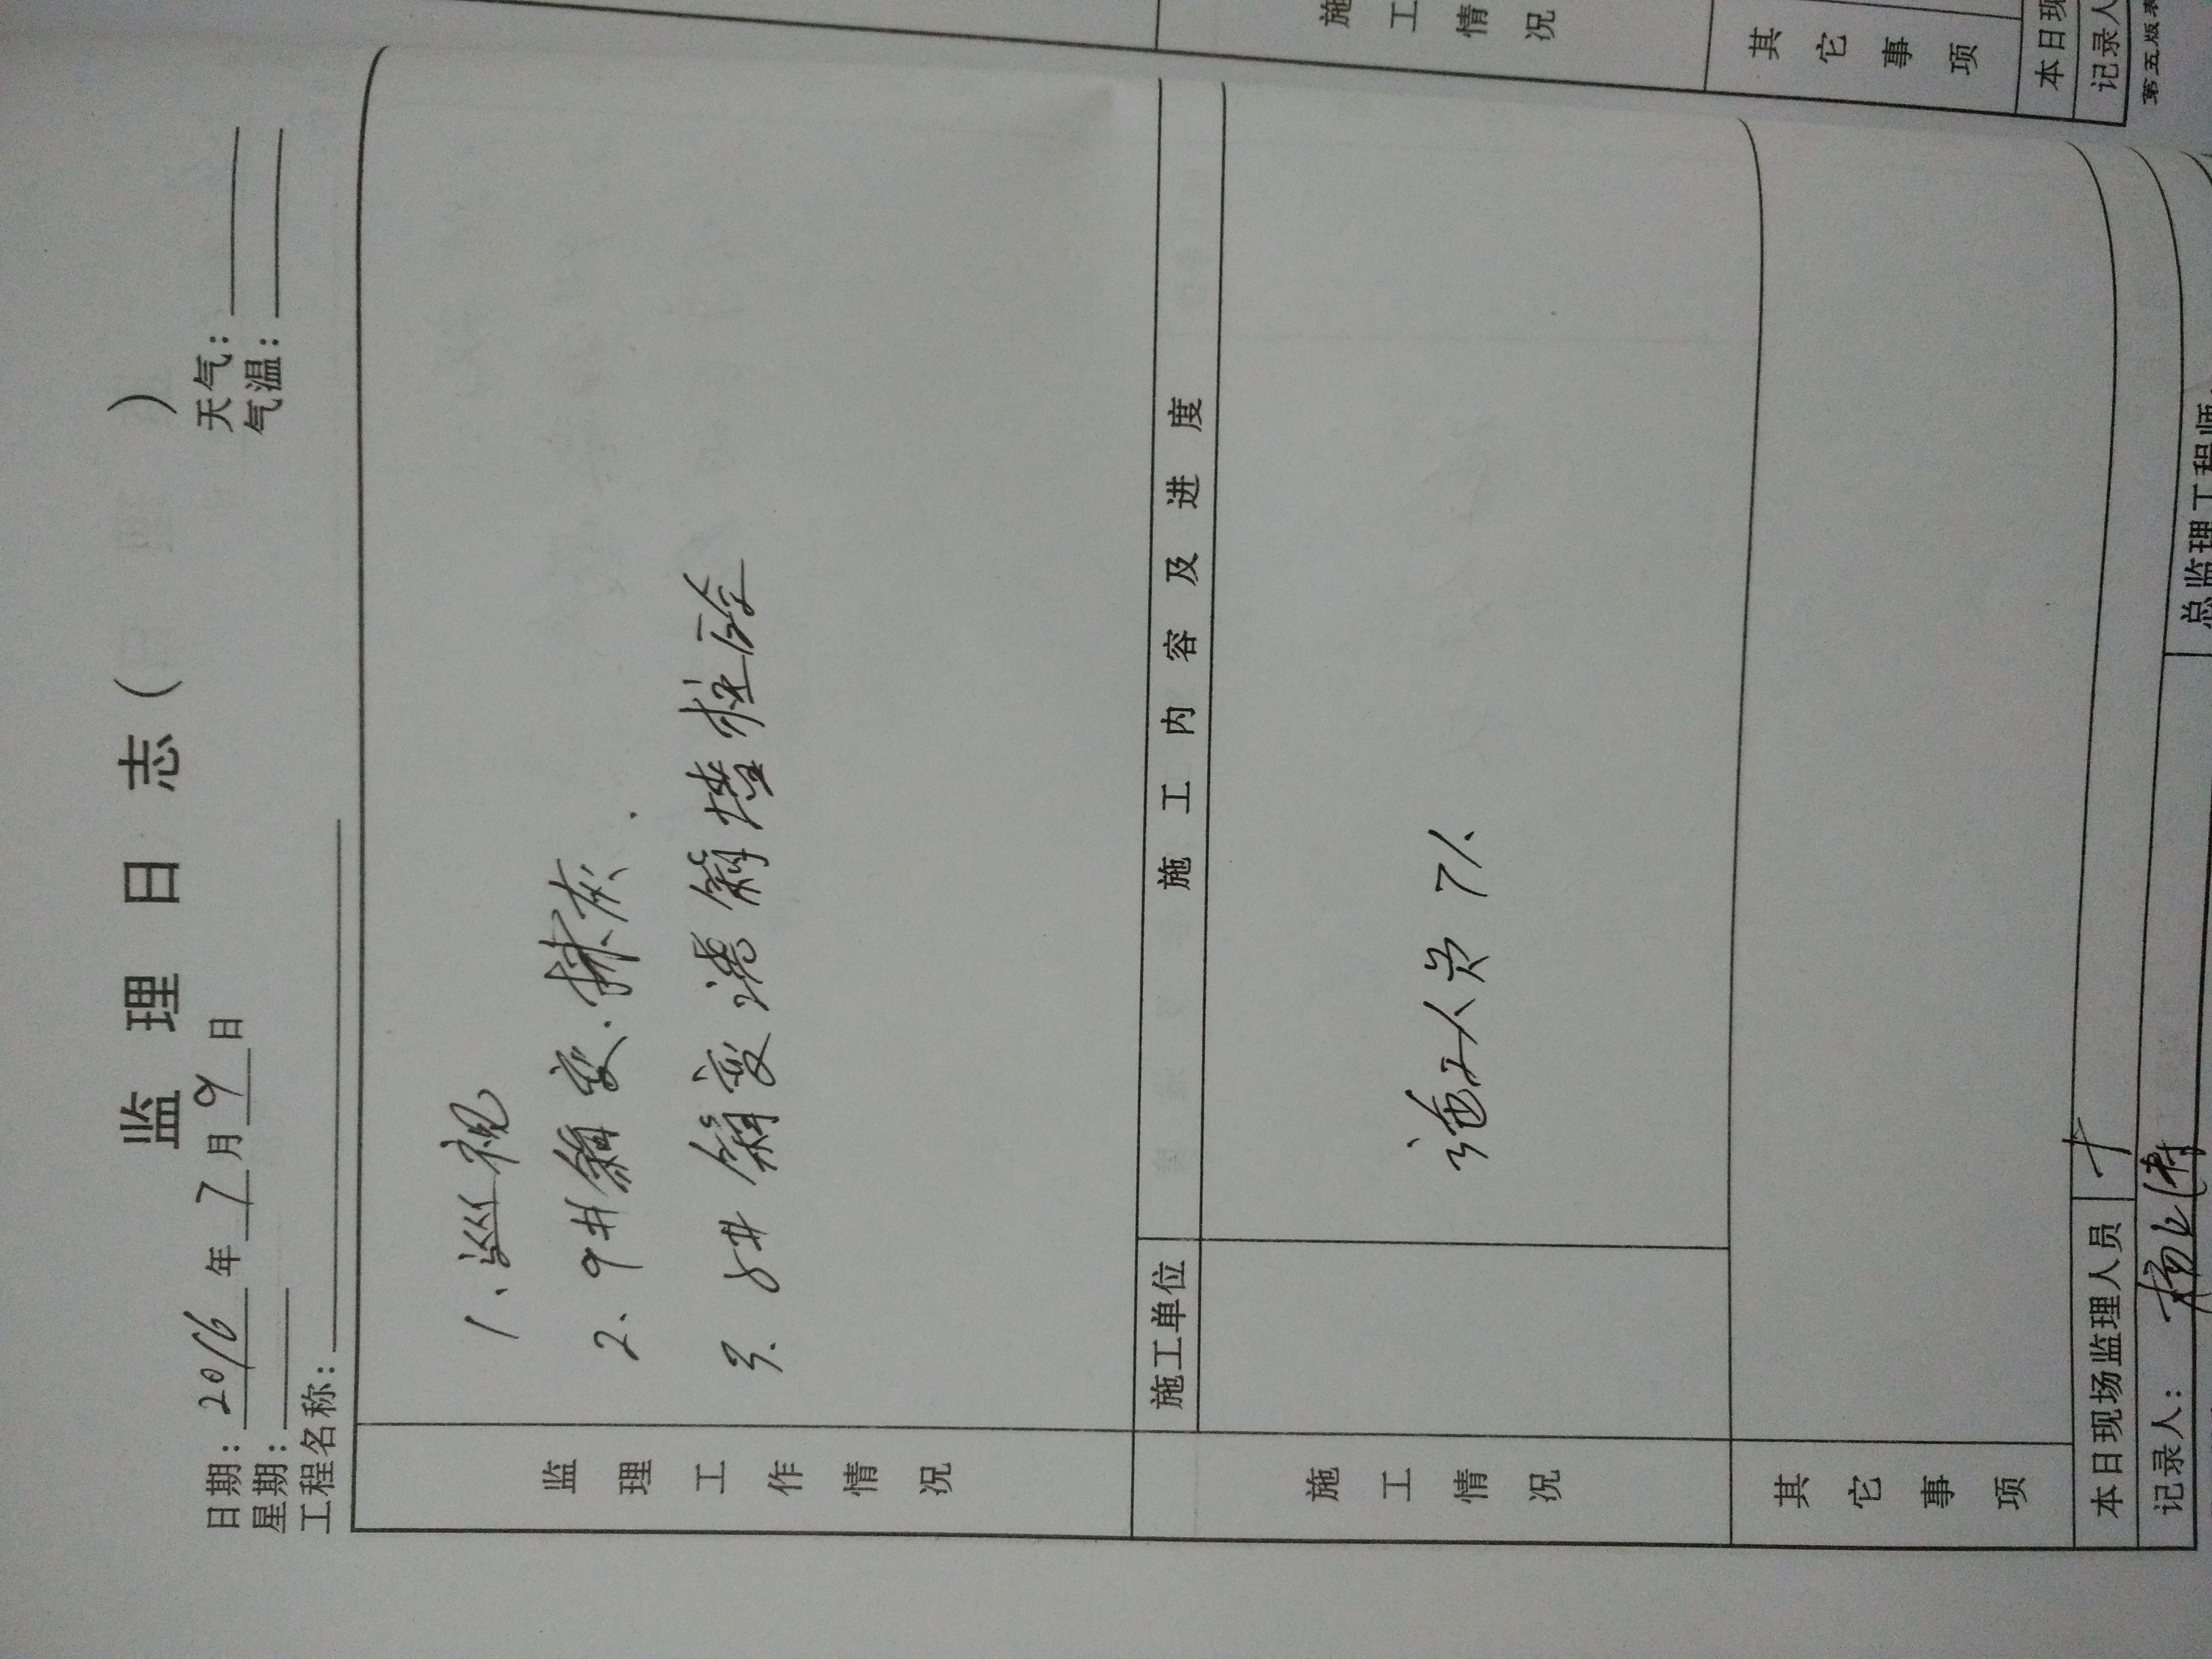 监 理 日 志 ( )
日期: 2016 年 7 月 9 日 天气:
星期: 气温:
工程名称:
监理工作情况
1、巡视
2、9#箱变、抹灰.
3、8#箱变
施工单位 施 工 内 容 及 进 度
施工情况
施工人员 7人
其它事项
本日现场监理人员
记录人: 总监理工程师
施工情况
其它事项
本日现
记录人
第五版表